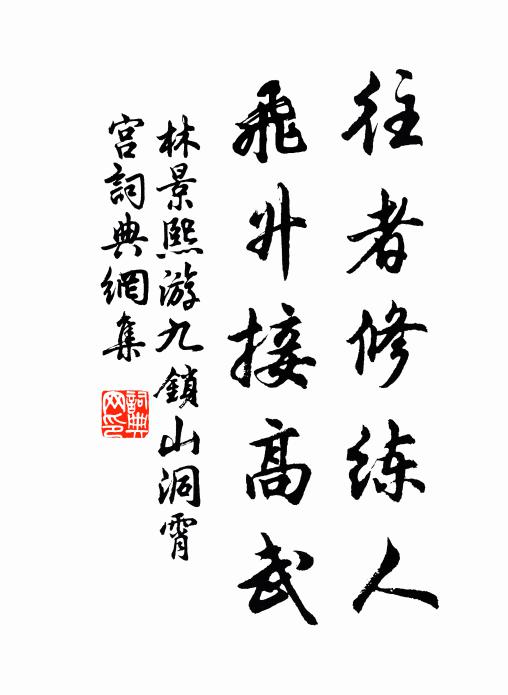 往者修练人
飛升接高武
林景熙游九鎖山洞霄
宫詞典網集
詞典网印